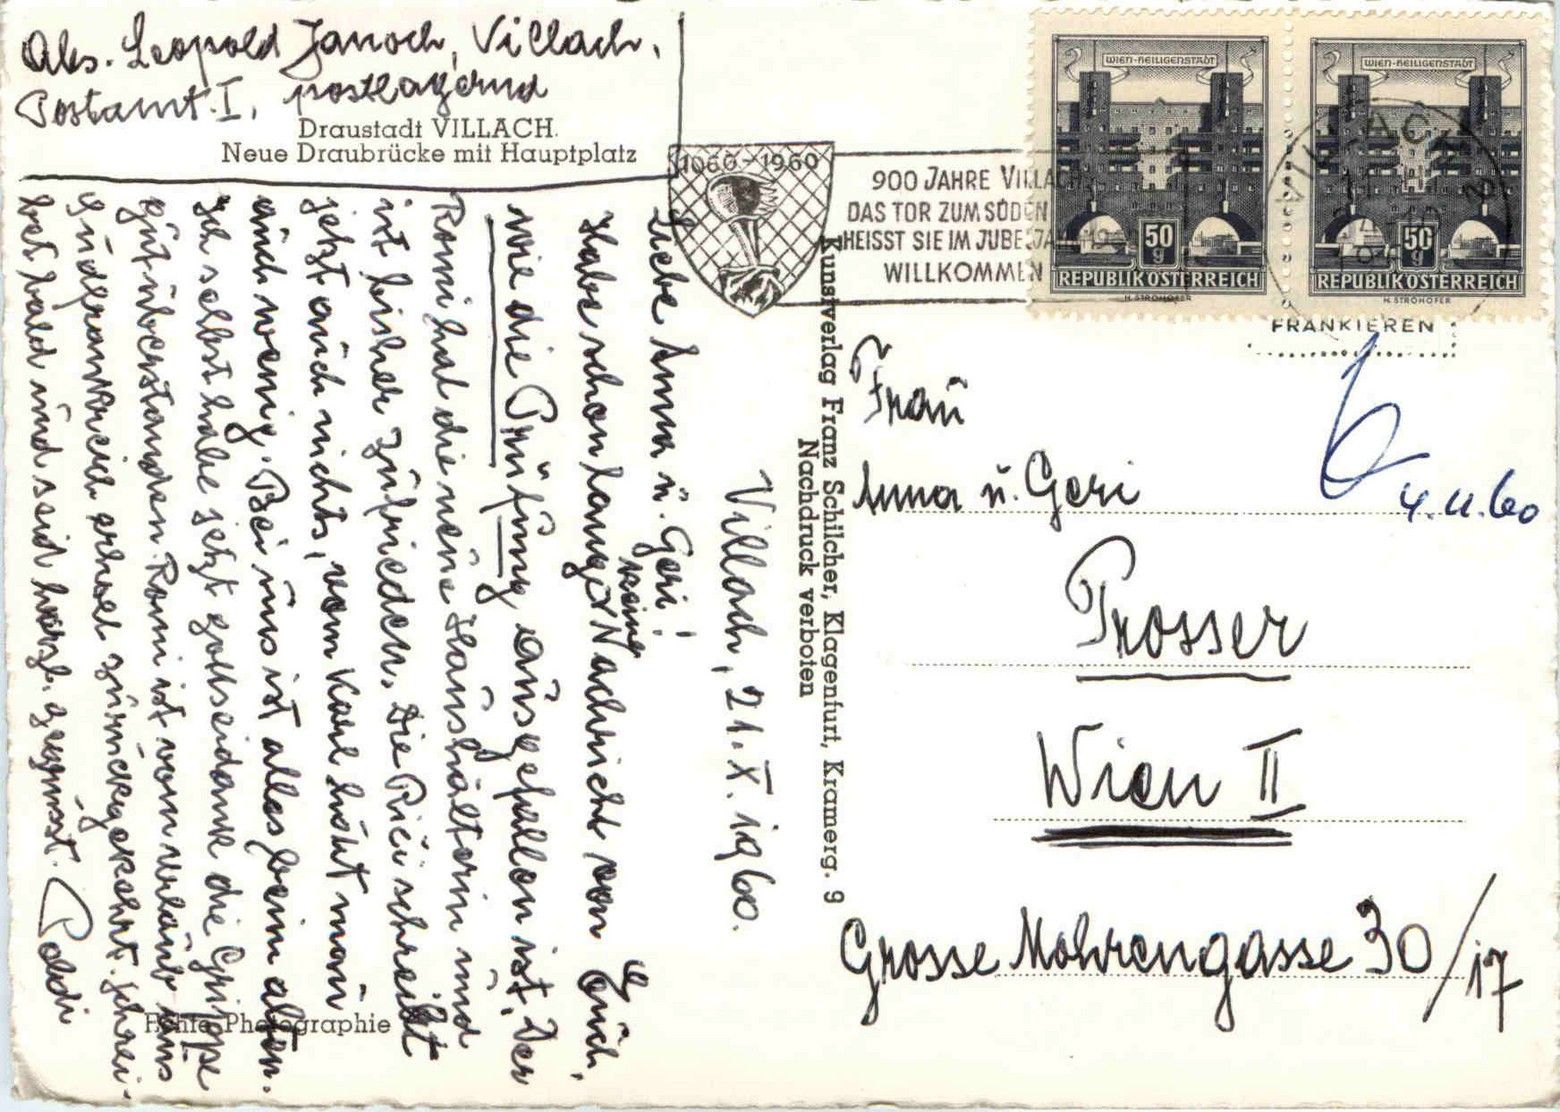 Abs. Leopold Janoch, Villach,
Postamt I, postlagernd
Draustadt VILLACH.
Neue Draubrücke mit Hauptplatz
1060-1960
900 JAHRE VILLACH
DAS TOR ZUM SÜDEN
HEISST SIE IM JUBEL
WILLKOMMEN
WIEN-HEILIGENSTADT
50 g
REPUBLIK ÖSTERREICH
H. STROHOFER
WIEN-HEILIGENSTADT
50 g
REPUBLIK ÖSTERREICH
H. STROHOFER
VILLACH
FRANKIEREN
Villach, 21. X. 1960.
Liebe Anna u. Geri!
Habe schon lange keine Nachricht von Euch,
wie die Prüfung ausgefallen ist. Der
Romi hat die neue Haushälterin und
ist bisher zufrieden. Die Rici schreibt
jetzt auch nichts, vom Karl hört man
auch wenig. Bei uns ist alles beim alten.
Ich selbst habe jetzt gottseidank die Grippe
gut überstanden. Romi ist vom Urlaub aus
Südfrankreich erholt zurückgekehrt. Schrei-
bet bald und seid herzl. gegrüsst. Poldi
Echte Photographie
Kunstverlag Franz Schilcher, Klagenfurt, Kramerg. 9
Nachdruck verboten
Frau
Anna u. Geri
Prosser
Wien II
Grosse Mohrengasse 30/17
4.11.60